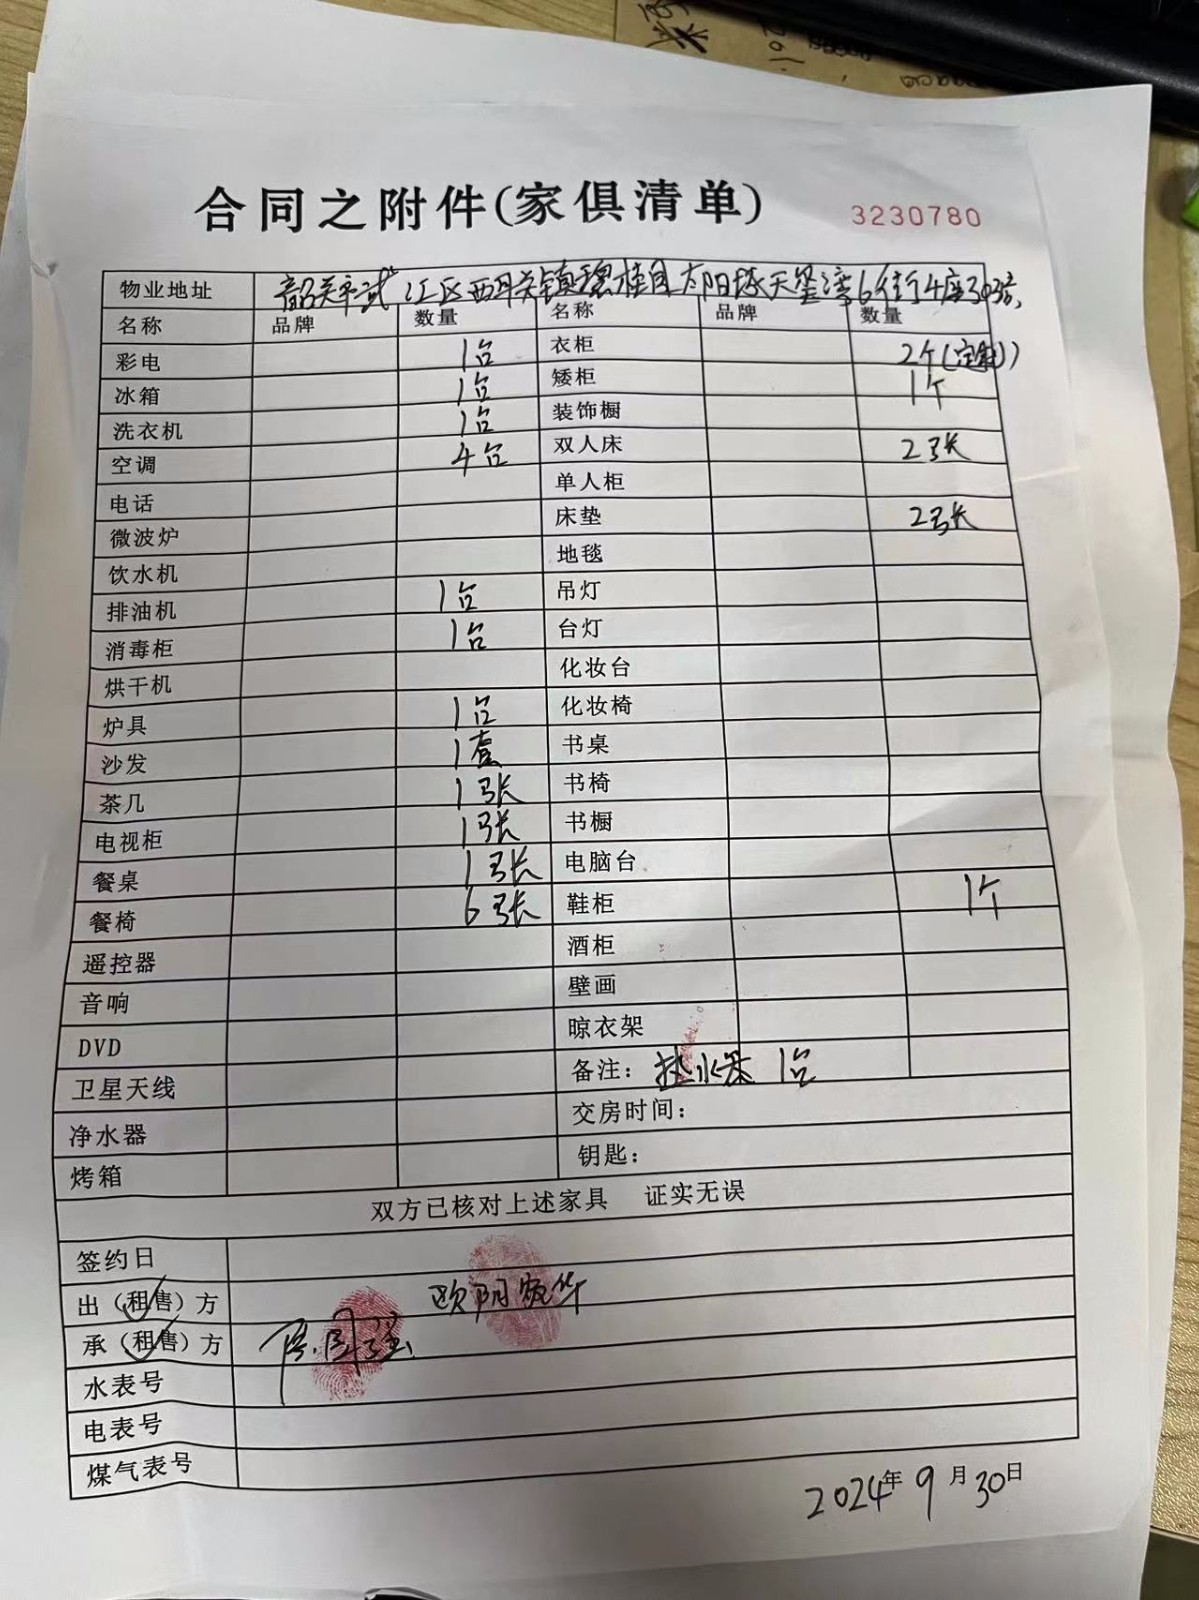 合同之附件(家俱清单) 3230780
物业地址 韶关市武江区西联镇碧桂园太阳城天玺湾6街4座303号
名称 品牌 数量 名称 品牌 数量
彩电 1台 衣柜 2个(定制)
冰箱 1台 矮柜 1个
洗衣机 1台 装饰橱
空调 4台 双人床 2张
电话 单人柜
微波炉 床垫 2张
饮水机 地毯
排油机 1台 吊灯
消毒柜 1台 台灯
烘干机 化妆台
炉具 1台 化妆椅
沙发 1套 书桌
茶几 1张 书椅
电视柜 1张 书橱
餐桌 1张 电脑台
餐椅 6张 鞋柜 1个
遥控器 酒柜
音响 壁画
DVD 晾衣架
卫星天线 备注: 热水器 1台
净水器 交房时间:
烤箱 钥匙:
双方已核对上述家具 证实无误
签约日
出(租售)方 欧阳
承(租售)方
水表号
电表号
煤气表号
2024年9月30日